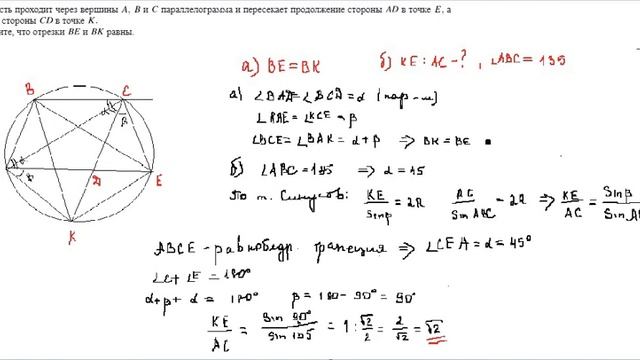 сть проходит через вершины A, B и C параллелограмма и пересекает продолжение стороны AD в точке E, а
стороны CD в точке K.
ите, что отрезки BE и BK равны.
а) BE = BK
б) KE : AC - ? , ∠ABC = 135
B
C
α
β
A
α
β
D
E
K
а) ∠BAD = ∠BCD = α
∠KCE = β
∠BCE = ∠BAK = α + β ⇒ BK = BE
б) ∠ABC = 135 ⇒ α = 45
По т. Синусов: KE / Sin β = 2R AC / Sin ABC = 2R ⇒ KE / AC = Sin β /
ABCE - равнобедр. трапеция ⇒ ∠CEA = α = 45°
∠C + ∠E = 180°
α + β + α = 180° β = 180 - 90° = 90°
KE / AC = Sin 90° / Sin 135 = 1 : √2 / 2 = 2 / √2 = √2